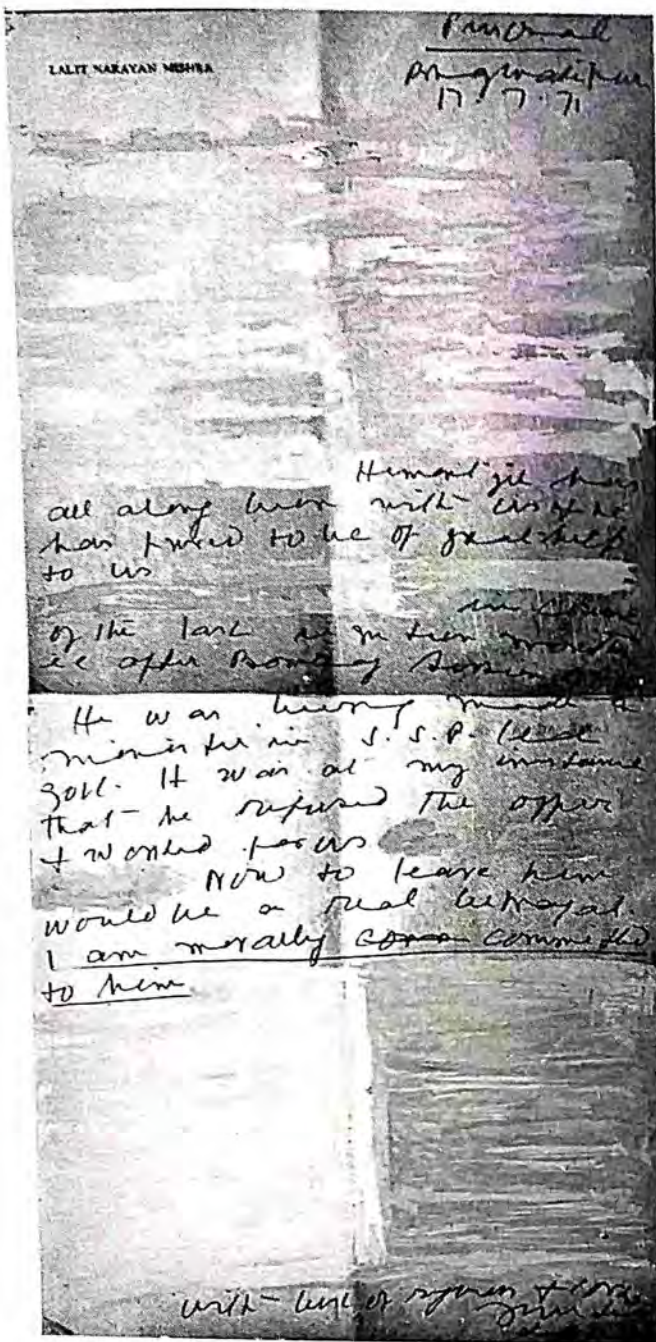 LALIT NARAYAN MISHRA
Personal
17.7.71
Hemant jee has
all along been with us & he
has proved to be of great help
to us
in course
of the last
i.e after Bombay Session
He was being made a
minister in S.S.P. lead
Govt. It was at my instance
that he refused the offer
& worked for us
Now to leave him
would be a real betrayal.
I am morally committed
to him
with best of